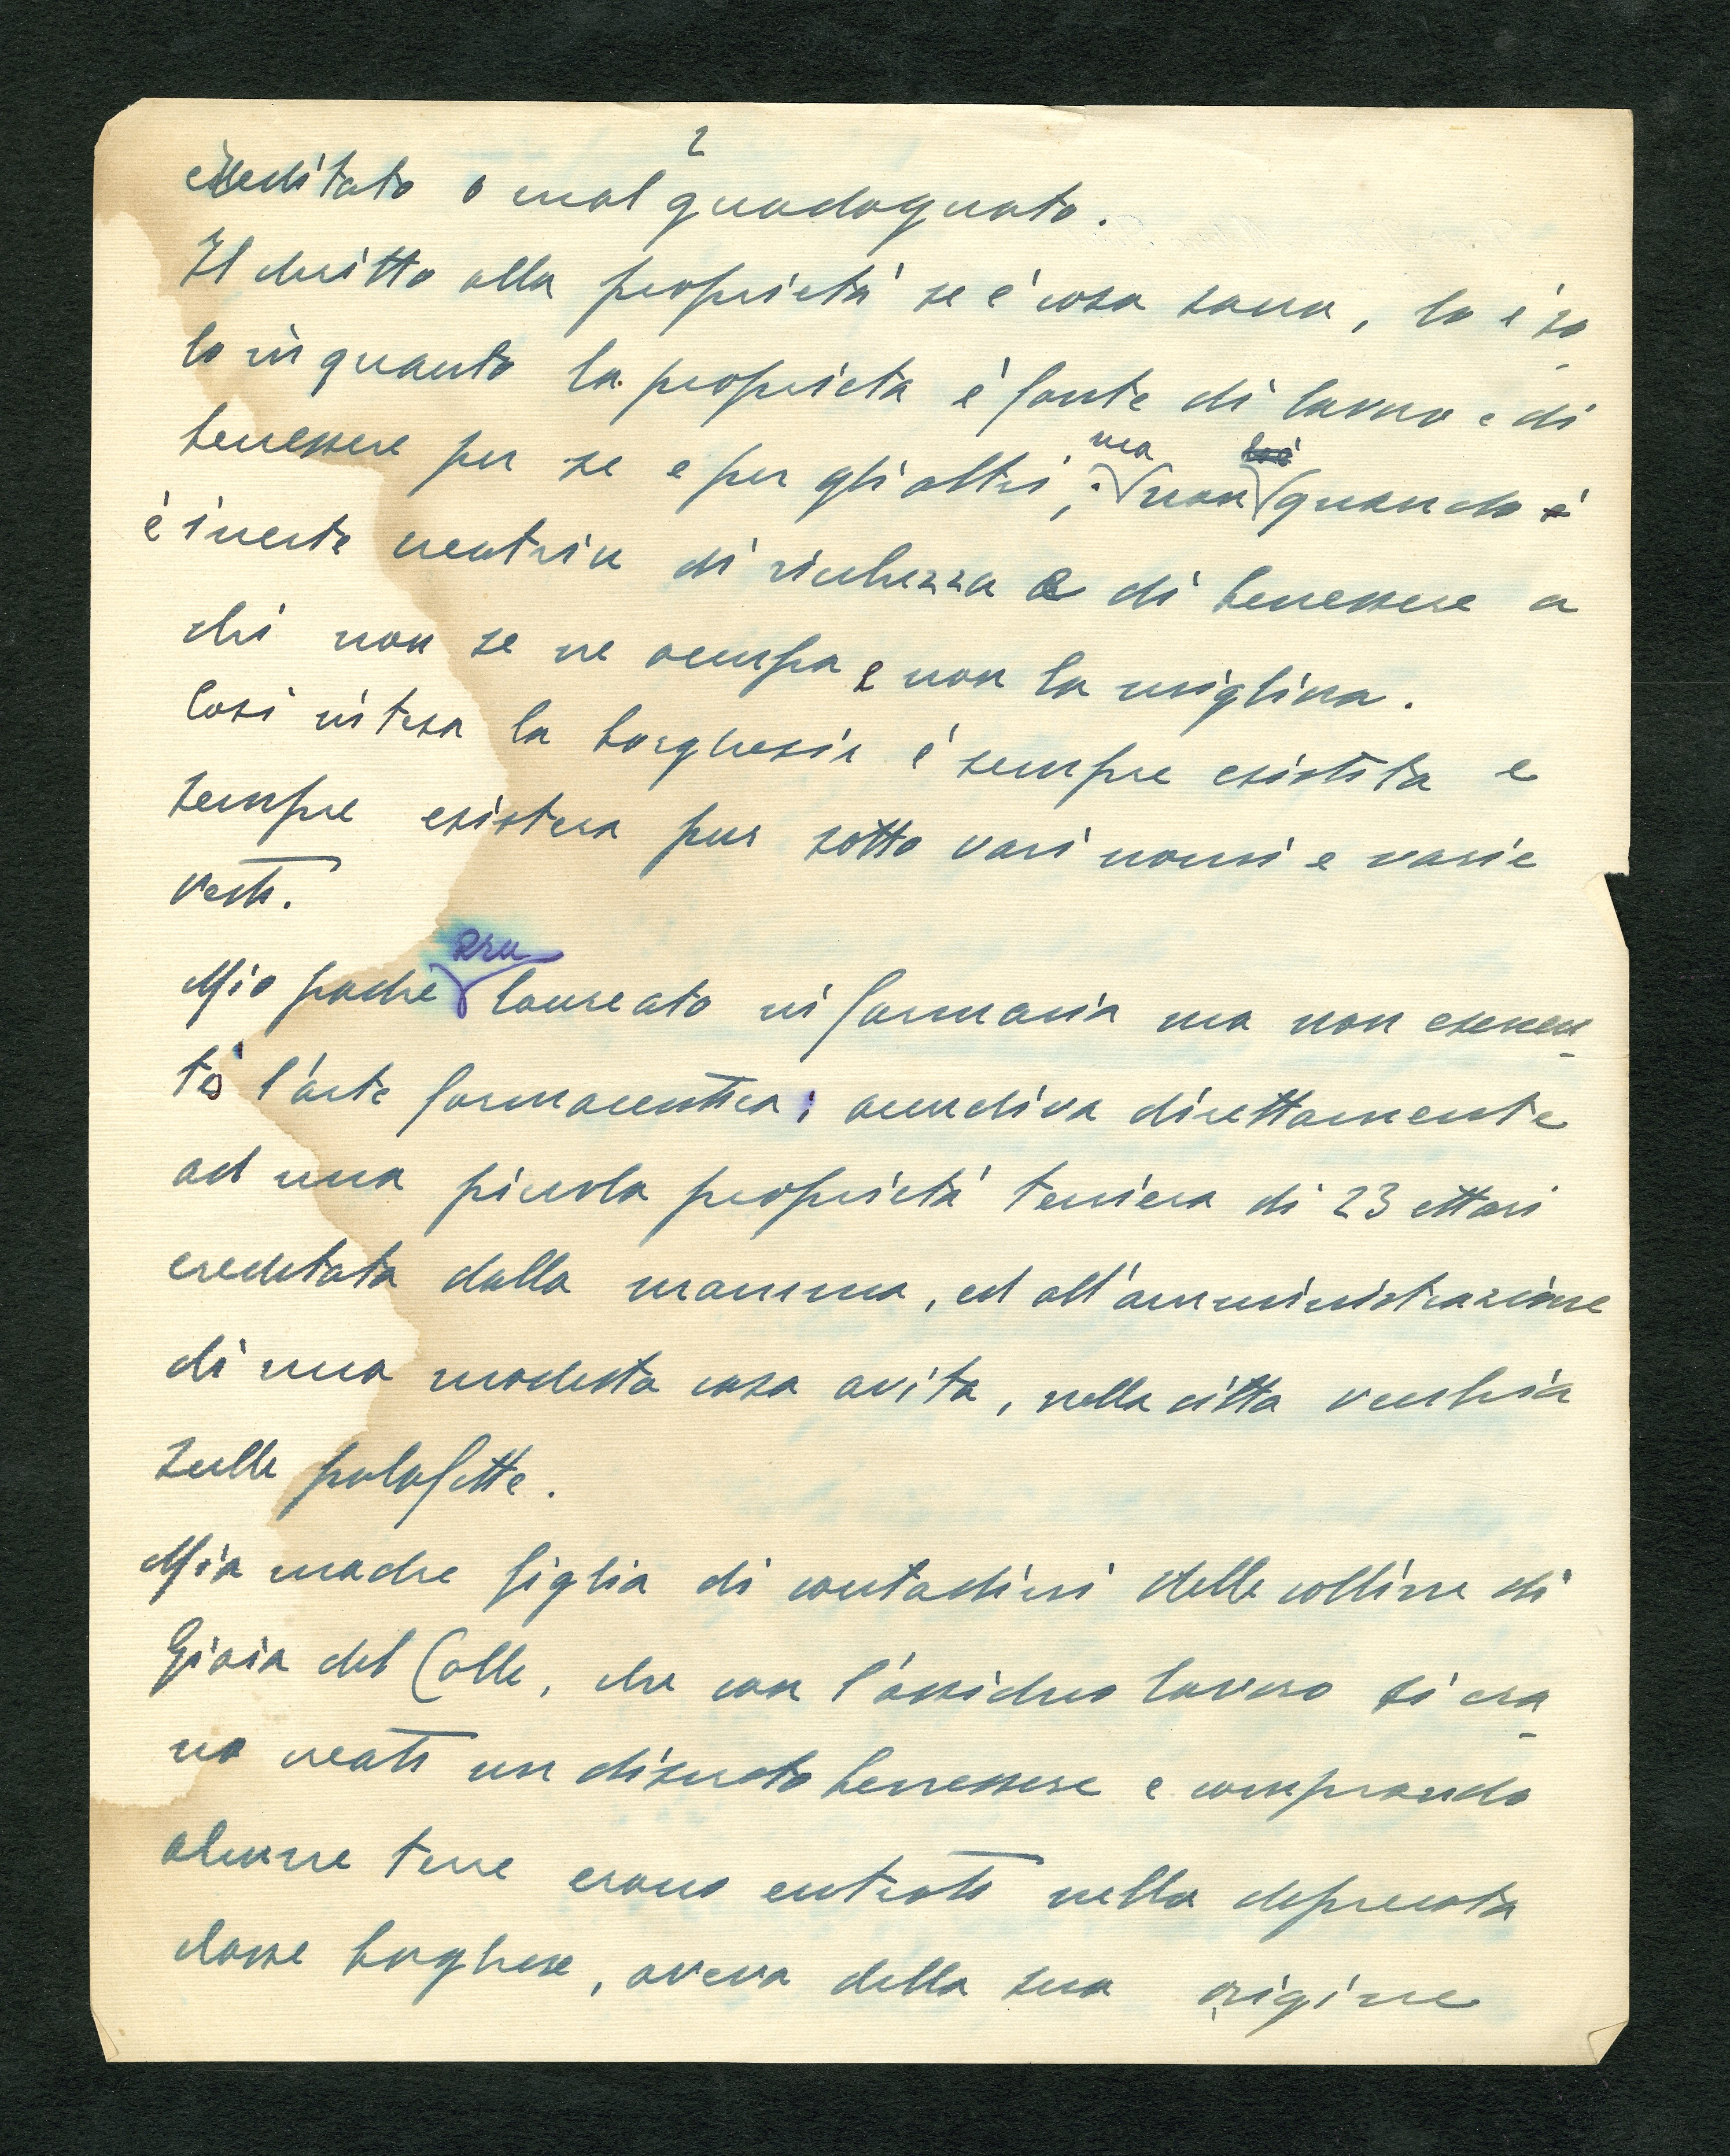 2
ereditato o mal guadagnato.
Il diritto alla proprietá se é cosa sacra, lo é so
lo in quanto la proprieta é fonte di lavoro e di
benessere per se e per gli altri, ma non quando
é inerte creatrice di ricchezza e di benessere a
chi non se ne occupa e non la migliora.
Cosi intesa la borghesia é sempre esistita e
sempre esistera pur sotto vari nomi e varie
vesti.
Mio padre era laureato in farmacia ma non eserci
tó l'arte farmaceutica; accudiva direttamente
ad una piccola proprietá terriera di 23 ettari
ereditata dalla mamma, ed all'amministrazione
di una modesta casa avita, nella citta vecchia
sulle palafitte.
Mia madre figlia di contadini delle colline di
Gioia del Colle, che con l'assiduo lavoro si era
no creati un discreto benessere e comprando
alcune terre erano entrati nella deprecata
classe borghese, aveva della sua origine